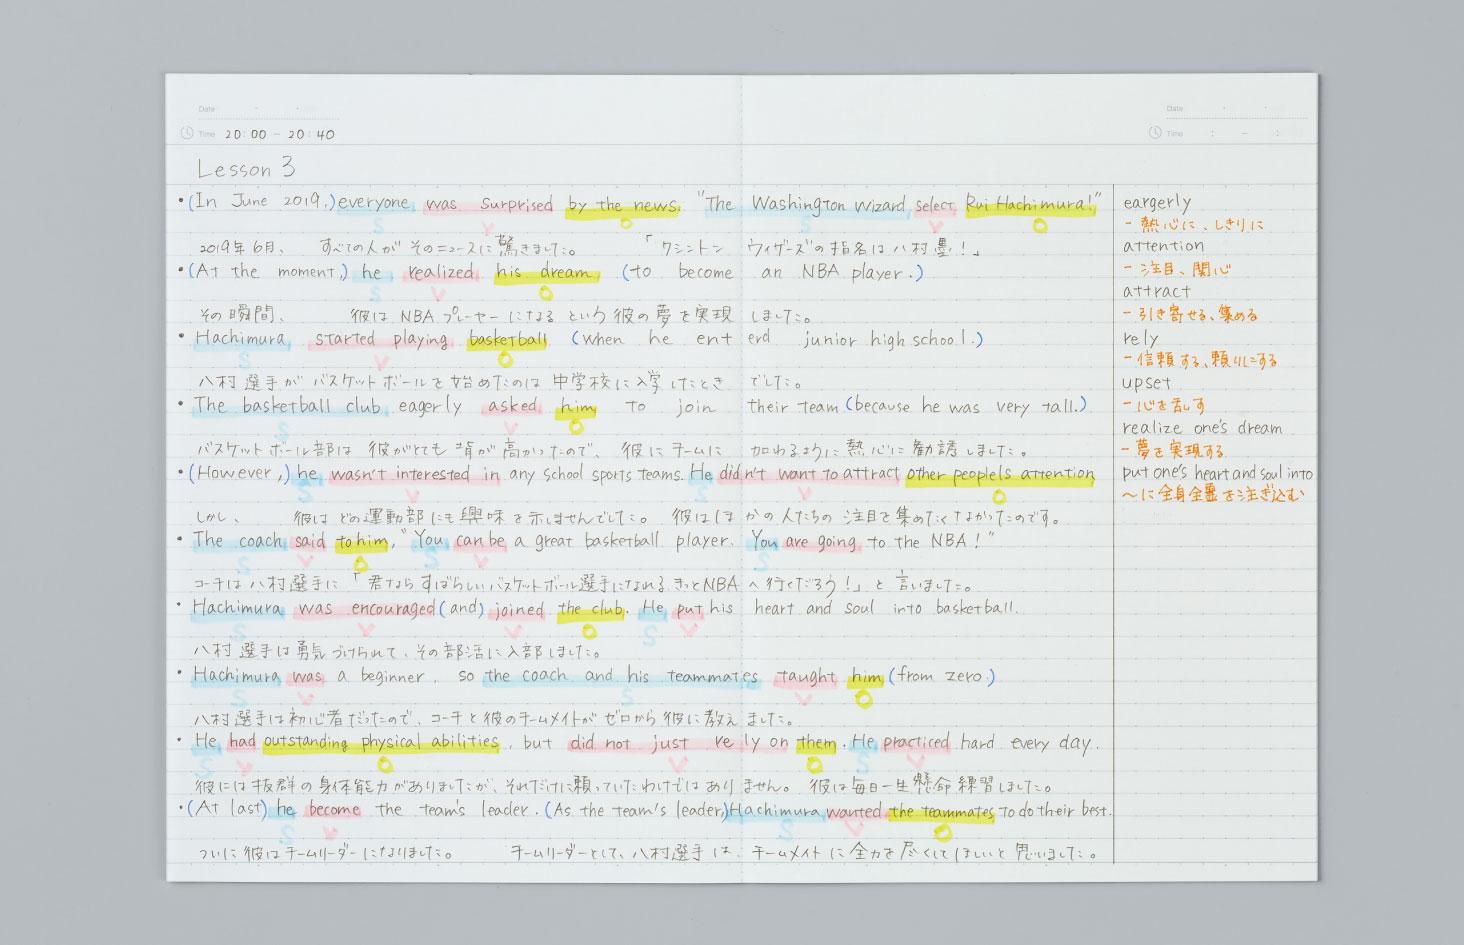 Date
Time 20:00 - 20:40
Date
Time : - :
Lesson 3
•(In June 2019,) everyone was surprised by the news. "The Washington Wizard select Rui Hachimura!"
S V O S V O
2019年6月、 すべての人が そのニュースに驚きました。 「ワシントン ウィザーズの指名は八村塁!」
•(At the moment,) he realized his dream (to become an NBA player.)
S V O
その瞬間、 彼は NBA プレーヤーになるという彼の夢を実現しました。
• Hachimura started playing basketball (when he enterd junior high school.)
S V O
八村選手が バスケットボールを始めたのは 中学校に入学したときでした。
• The basketball club eagerly asked him to join their team (because he was very tall.)
S V O
バスケットボール部は 彼がとても背が高かったので、 彼にチームに 加わるように熱心に勧誘しました。
•(However,) he wasn't interested in any school sports teams. He didn't want to attract other people's attention
S V S V O
しかし、 彼は どの運動部にも興味を示しませんでした。 彼はほかの人たちの 注目を集めたくなかったのです。
• The coach said to him, "You can be a great basketball player. You are going to the NBA!"
S V O S V S
コーチは八村選手に 「君ならすばらしいバスケットボール選手になれる。きっとNBAへ行くだろう!」と 言いました。
• Hachimura was encouraged (and) joined the club. He put his heart and soul into basketball.
S V V O S V
八村選手は勇気づけられて、その部活に入部しました。
• Hachimura was a beginner, so the coach and his teammates taught him (from zero.)
S V S V O
八村選手は初心者だったので、コーチと彼のチームメイトが ゼロから彼に教えました。
• He had outstanding physical abilities, but did not just rely on them. He practiced hard every day.
S V O V O S V
彼には抜群の身体能力がありましたが、それだけに頼っていたわけではありません。 彼は毎日一生懸命練習しました。
•(At last) he become the team's leader. (As the team's leader,) Hachimura wanted the teammates to do their best.
S V S V O
ついに彼はチームリーダーになりました。 チームリーダーとして、八村選手は、チームメイトに全力を尽くしてほしいと思いました。
eargerly
- 熱心に、しきりに
attention
- 注目、関心
attract
- 引き寄せる、集める
rely
- 信頼する、頼りにする
upset
- 心を乱す
realize one's dream
- 夢を実現する
put one's heart and soul into
〜に全身全霊を注ぎ込む